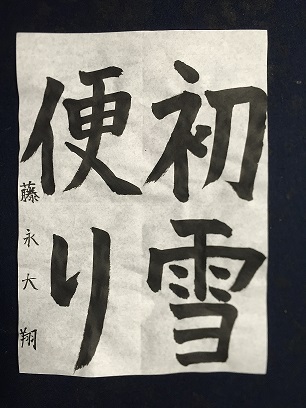 初雪
便り
藤永大翔